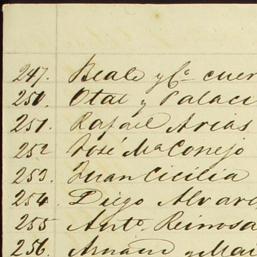 247. Beale y Cª cuer
250. Otal y Palaci
251. Rafael Arias
252 José Mª Conejo
253. Juan Cicilia
254. Diego Alvare
255 Antº. Reinosa
256.